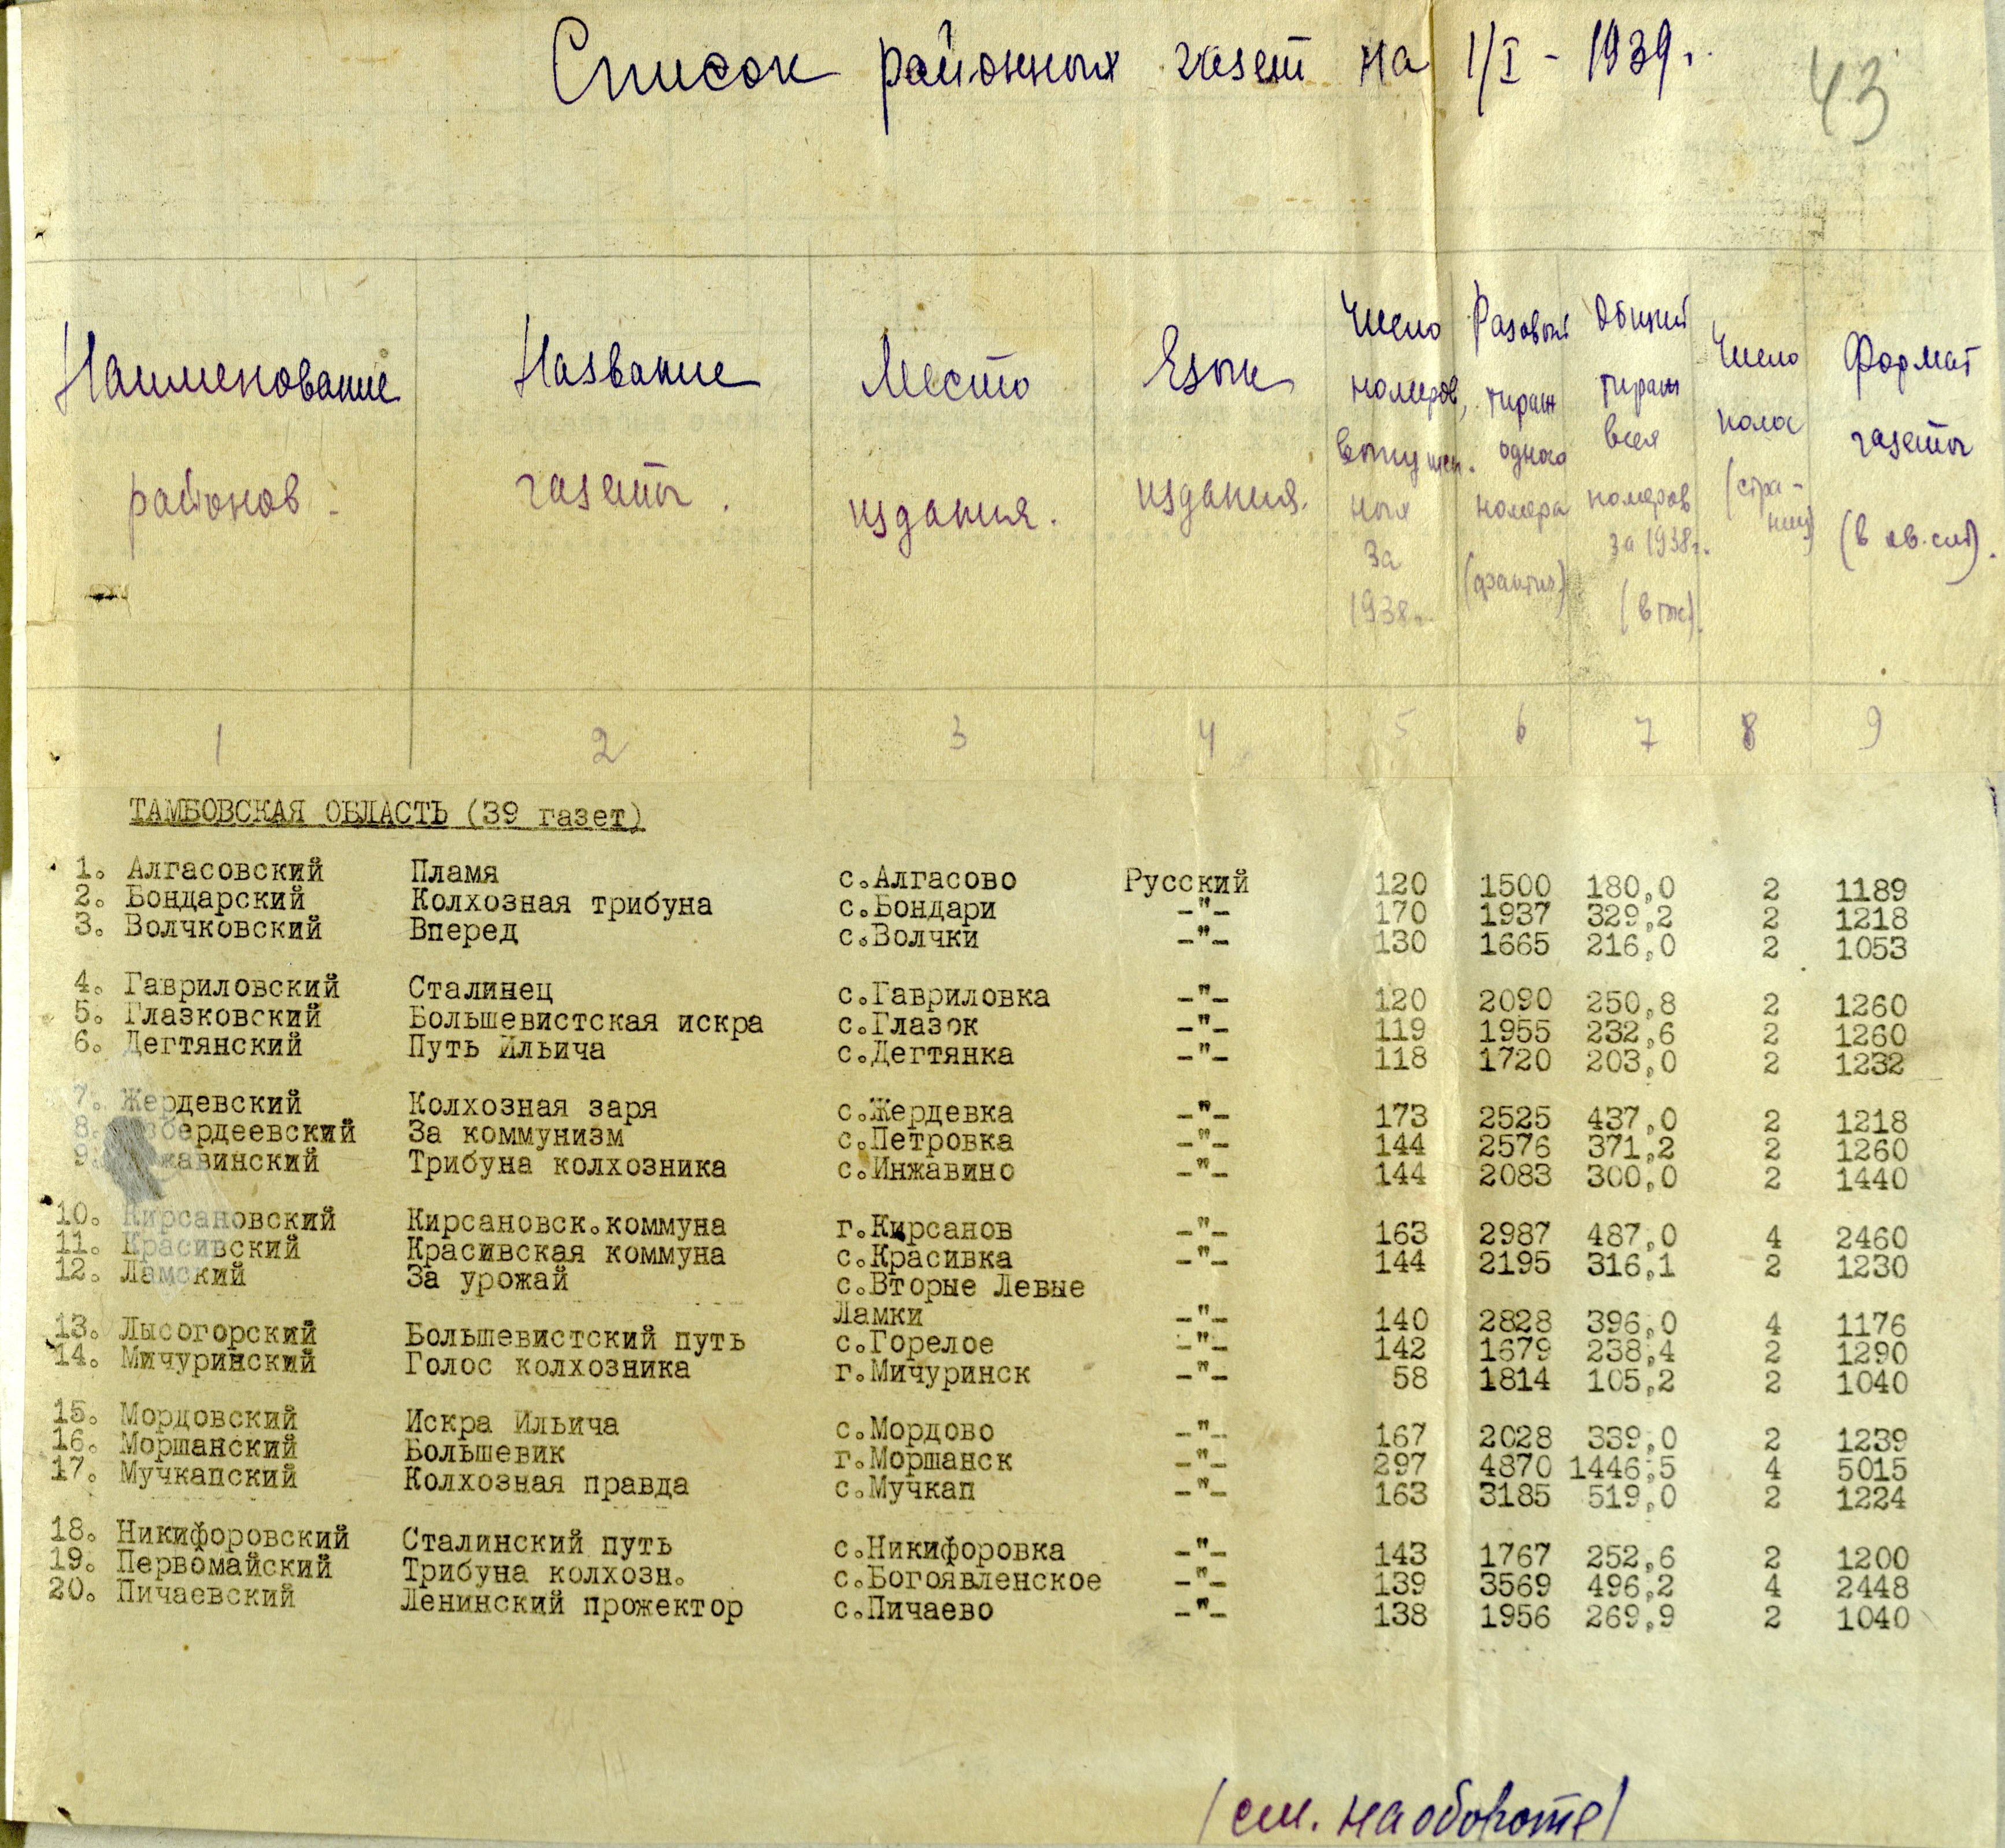 Список районных газет на 1/I - 1939г.
43
Наименование районов
Название газеты.
Место издания.
Езык издания.
Число номеров, выпущен. ных за 1938г.
Разовый тираж одного номера (фактич)
Общий тираж всех номеров за 1938г. (в тыс).
Число полос (стра-ниц)
Формат газеты (в кв.см).
1 2 3 4 5 6 7 8 9
ТАМБОВСКАЯ ОБЛАСТЬ (39 газет)
1. Алгасовский Пламя с.Алгасово Русский 120 1500 180,0 2 1189
2. Бондарский Колхозная трибуна с.Бондари -"- 170 1937 329,2 2 1218
3. Волчковский Вперед с.Волчки -"- 130 1665 216,0 2 1053
4. Гавриловский Сталинец с.Гавриловка -"- 120 2090 250,8 2 1260
5. Глазковский Большевистская искра с.Глазок -"- 119 1955 232,6 2 1260
6. Дегтянский Путь Ильича с.Дегтянка -"- 118 1720 203,0 2 1232
7. Жердевский Колхозная заря с.Жердевка -"- 173 2525 437,0 2 1218
8. За коммунизм с.Петровка -"- 144 2576 371,2 2 1260
9. Трибуна колхозника с.Инжавино -"- 144 2083 300,0 2 1440
10. Кирсановский Кирсановск.коммуна г.Кирсанов -"- 163 2987 487,0 4 2460
11. Красивский Красивская коммуна с.Красивка -"- 144 2195 316,1 2 1230
12. Ламский За урожай с.Вторые Левые
Ламки -"- 140 2828 396,0 4 1176
13. Лысогорский Большевистский путь с.Горелое -"- 142 1679 238,4 2 1290
14. Мичуринский Голос колхозника г.Мичуринск -"- 58 1814 105,2 2 1040
15. Мордовский Искра Ильича с.Мордово -"- 167 2028 339,0 2 1239
16. Моршанский Большевик г.Моршанск -"- 297 4870 1446,5 4 5015
17. Мучкапский Колхозная правда с.Мучкап -"- 163 3185 519,0 2 1224
18. Никифоровский Сталинский путь с.Никифоровка -"- 143 1767 252,6 2 1200
19. Первомайский Трибуна колхозн. с.Богоявленское -"- 139 3569 496,2 4 2448
20. Пичаевский Ленинский прожектор с.Пичаево -"- 138 1956 269,9 2 1040
/см. на обороте/